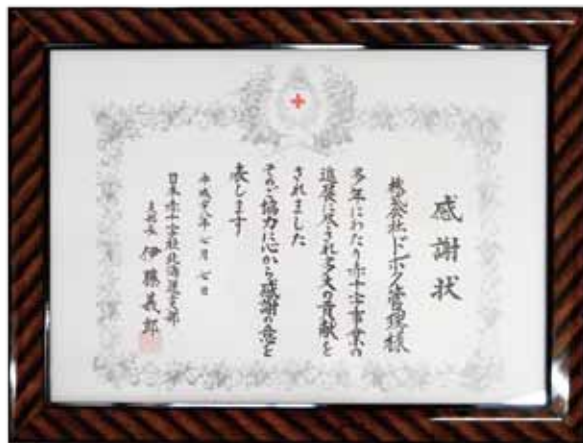 感謝状
株式会社ドボク管理様
多年にわたり赤十字事業の
進展に尽され多大の貢献を
されました
そのご協力に心から感謝の意を
表します
平成廿八年七月七日
日本赤十字社北海道支部
支部長 伊藤義郎